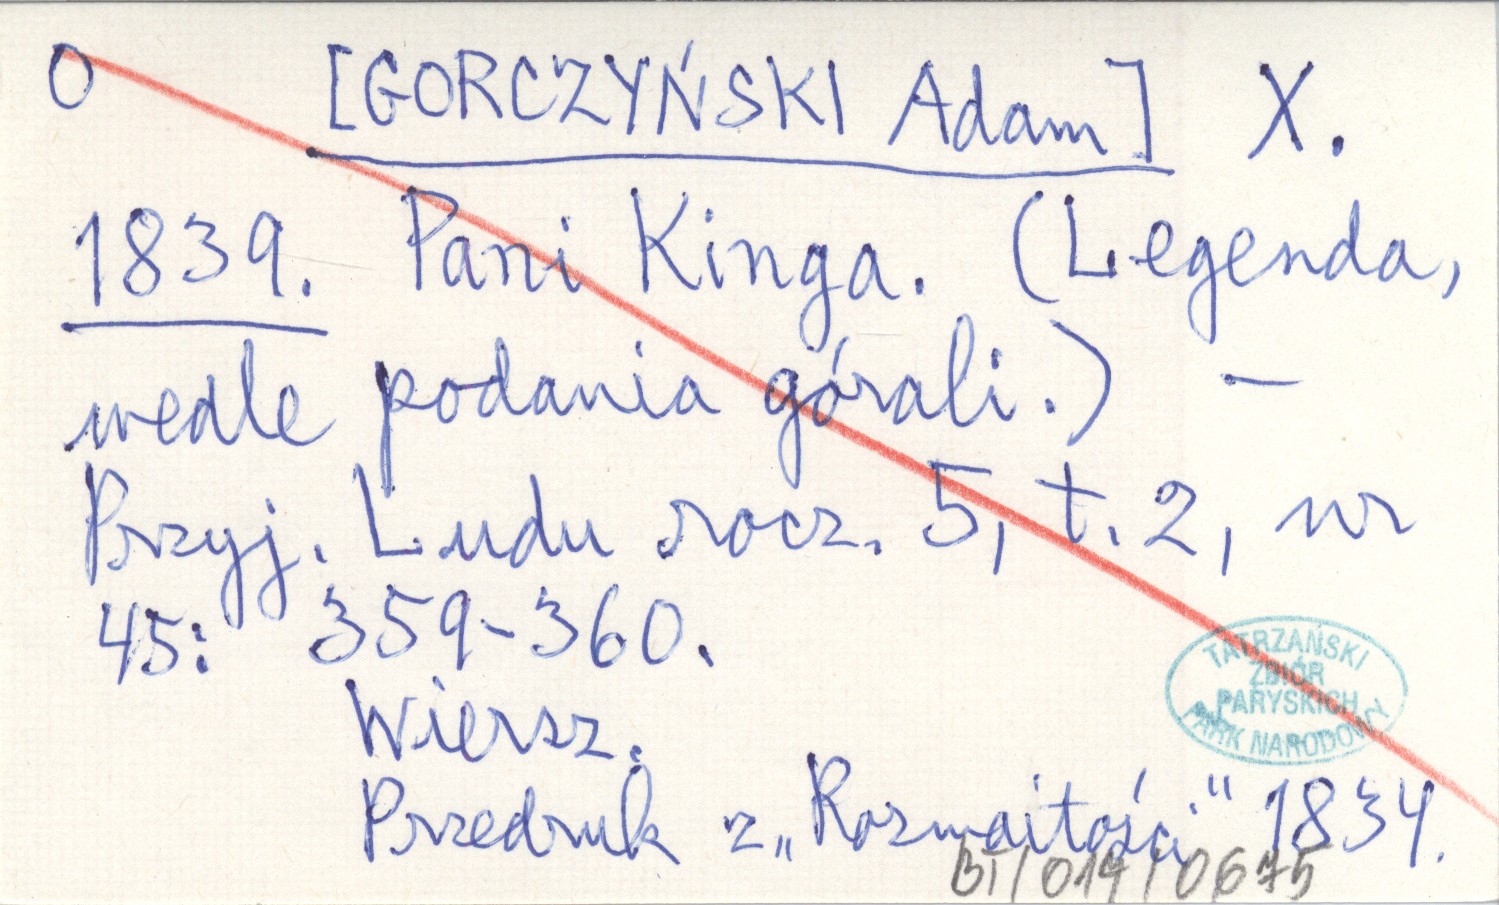 O [GORCZYŃSKI Adam] X.
1839. Pani Kinga. (Legenda,
wedle podania górali.) –
Przyj. Ludu rocz. 5, t. 2, nr
45: 359-360.
Wiersz.
Przedruk z „Rozmaitości" 1834.
TATRZAŃSKI
ZBIÓR
PARYSKICH
PARK NARODOWY
BT/019/0675